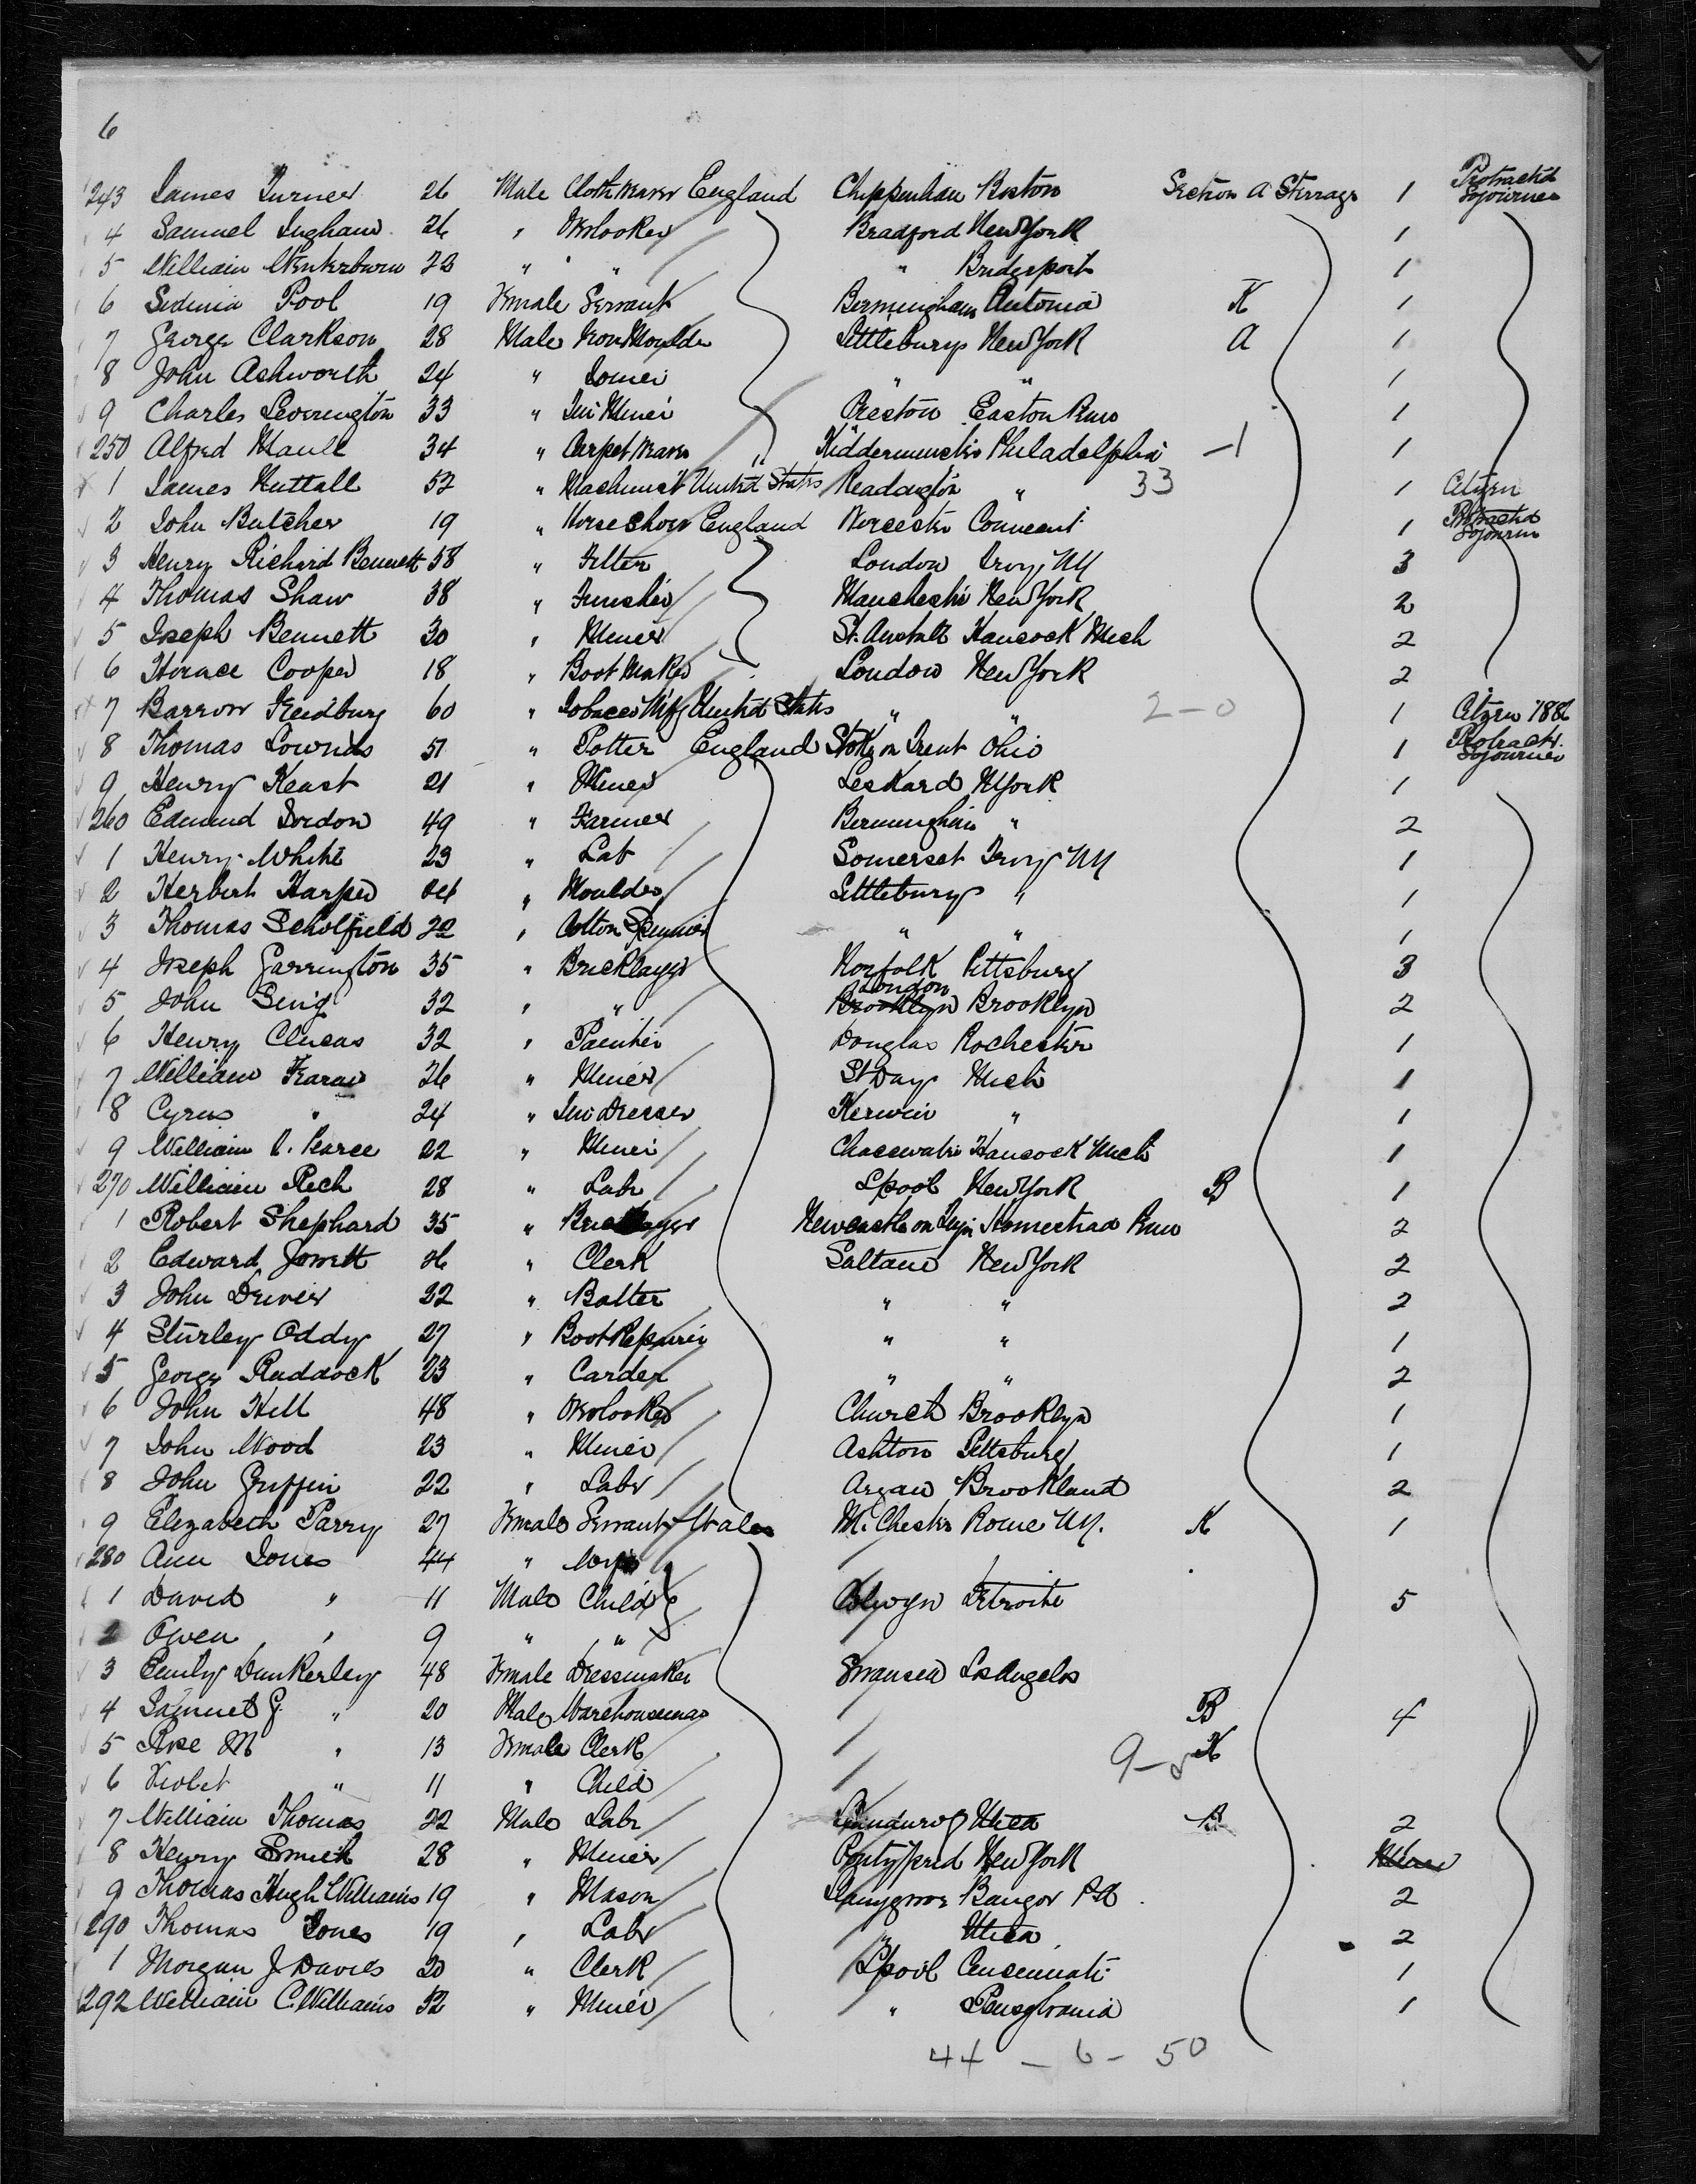 6
243 James Turner 26 Male Cloth Weaver England Chippenham Boston Section A Sterrage 1 Protractd Sojourner
4 Samuel Ingham 26 " Overlooker Bradford New York 1
5 William Winterburn 22 " " " Bridgeport 1
6 Pool 19 Female Servant Birmingham K 1
7 George Clarkson 28 Male Iron Moulder Settlebury New York A 1
8 John Ashworth 24 " Joiner " " 1
9 Charles Leverington 33 " Tin Miner Preston Easton 1
250 Alfred Maull 34 " Carpet Weaver " Kidderminster Philadelphia -1 1
1 James Nuttall 52 " Machinist United States Readdington " 33 1 Citzen
2 John Butcher 19 " Horse Shoer England Worcester Conneaut 1 Protractd Sojourn
3 Henry Richard Bennett 58 " Fitter London Troy, NY 3
4 Thomas Shaw 38 " Finisher Manchester New York 2
5 Joseph Bennett 30 " Miner St. Hancock Mich 2
6 Horace Cooper 18 " Boot Maker London New York 2
7 Barrow 60 " Tobacco Mfg United States " " 2-0 1 Citzen 1886
8 Thomas Lownds 51 " Potter England Stoke on Trent Ohio 1 Protractd. Sojourner
9 Henry Keast 21 " Miner Leskard N York 1
260 Edmund Dordon 49 " Farmer Birmingham " 2
1 Henry White 23 " Lab Somerset Troy NY 1
2 Herbert Harper 24 " Moulder Settlebury " 1
3 Thomas Scholfield 22 " Cotton Spinner " " 1
4 Joseph Garrington 35 " Bricklayer Norfolk Pittsburg 3
London
5 John 32 " " Brooklyn Brooklyn 2
6 Henry Clucas 32 " Painter Douglas Rochester 1
7 William 26 " Miner St Day Mich 1
8 Cyrus " 24 " Tin Dresser " 1
9 William Pearce 22 " Miner Chacewater Hancock Mich 1
270 William Rich 28 " Labr Lpool New York B 1
1 Robert Shephard 35 " Bricklayer Newcastle on Tyne Homestead 2
2 Edward Jowett 26 " Clerk Saltaire New York 2
3 John Driver 22 " Batter " " 2
4 Sturley Oddy 27 " Boot Repairer " " 1
5 George Ruddock 23 " Carder " " 2
6 John Hill 48 " Overlooker Church Brooklyn 1
7 John Wood 23 " Miner Ashton Pittsburg 1
8 John Griffin 22 " Labr Brookland 2
9 Elizabeth Parry 27 Female Servant Wales M. Chester Rome NY. K 1
280 Ann Jones 44 " Wife
1 David " 11 Male Child Colwyn Detroit 5
2 Owen " 9 " "
3 Emily Dunkerley 48 Female Dressmaker Swansea Los Angelos
4 Samuel G. " 20 Male Warehouseman B 4
5 Rose M " 13 Female Clerk 9- K
6 Violet " 11 " Child
7 William Thomas 22 Male Labr Utica B 2
8 Henry Smith 28 " Miner Pontypred New York
9 Thomas Hugh Williams 19 " Mason Bangor PA 2
290 Thomas Jones 19 " Labr " Utica 2
1 Morgan J Davies 20 " Clerk Lpool Cincinnati 1
292 William C. Williams 52 " Miner " Pensylvania 1
44 - 6 - 50